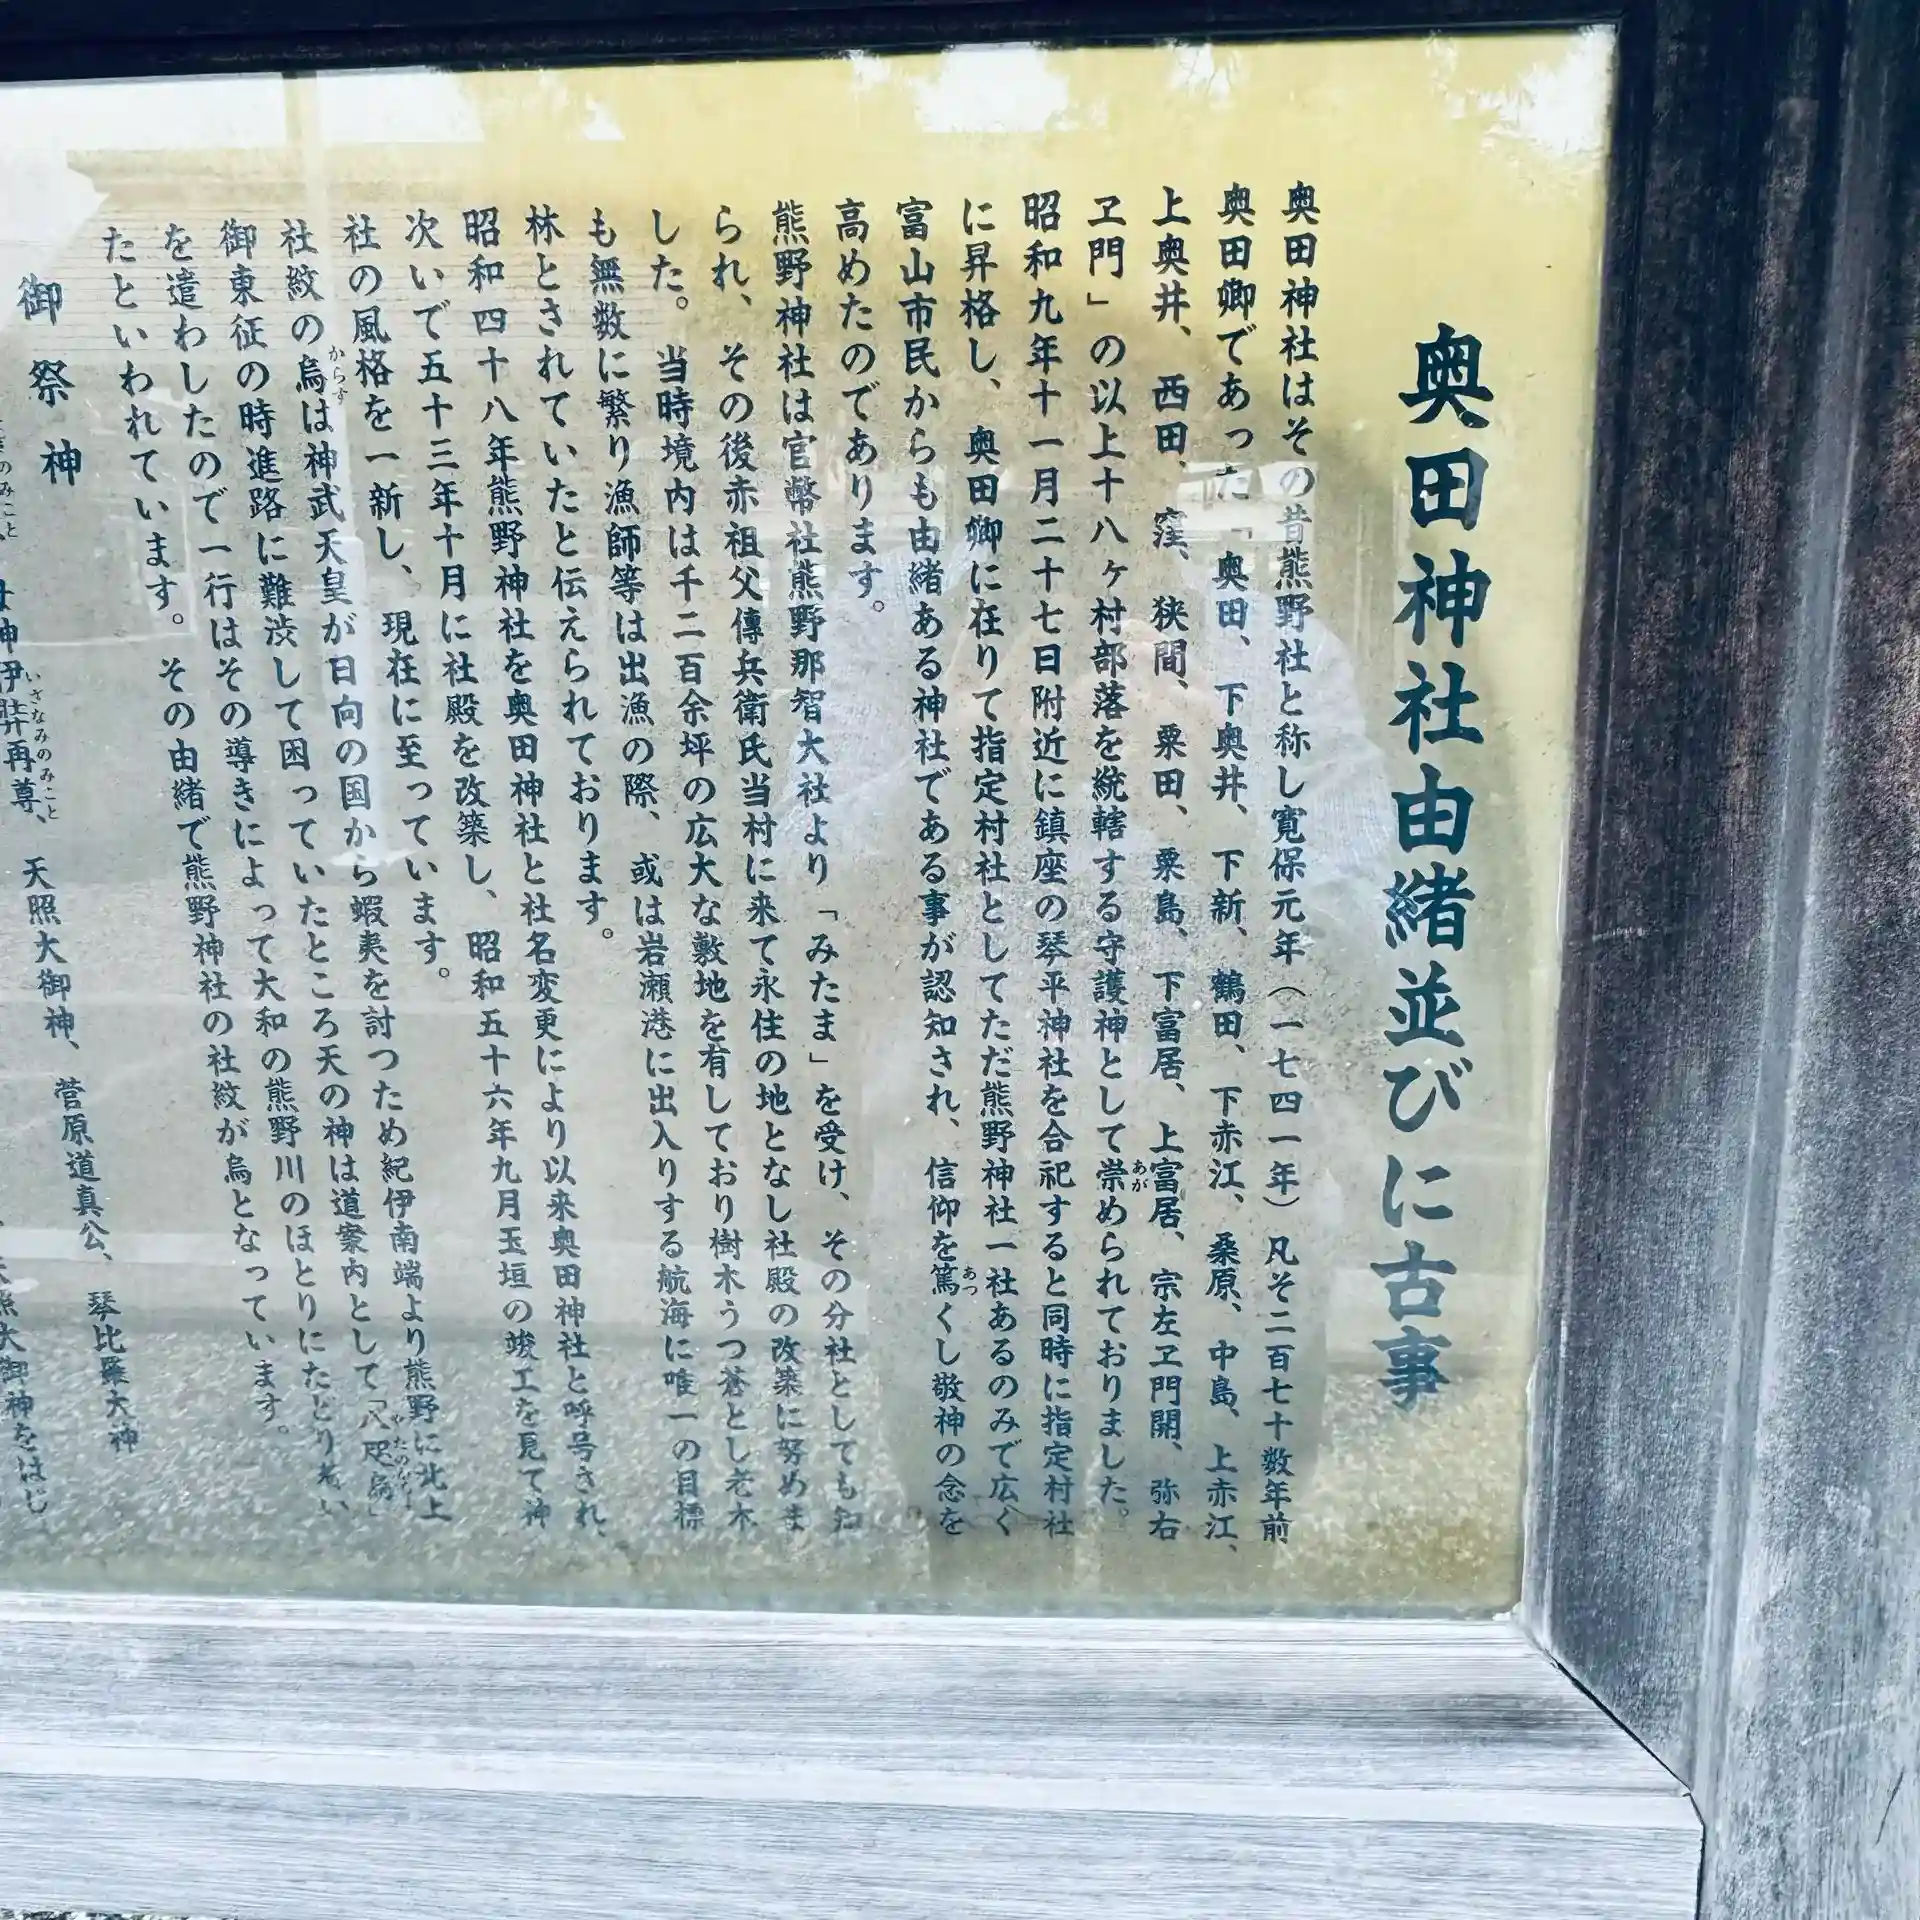 奥田神社由緒並びに古事
奥田神社はその昔熊野社と称し寛保元年（一七四一年）凡そ二百七十数年前
奥田郷であった「奥田、下奥井、下新、鶴田、下赤江、桑原、中島、上赤江、
上奥井、西田、窪、狭間、粟田、粟島、下富居、上富居、宗左ヱ門開、弥右
ヱ門」の以上十八ヶ村部落を統轄する守護神として崇められておりました。
昭和九年十一月二十七日附近に鎮座の琴平神社を合祀すると同時に指定村社
に昇格し、奥田郷に在りて指定村社としてただ熊野神社一社あるのみで広く
富山市民からも由緒ある神社である事が認知され、信仰を篤くし敬神の念を
高めたのであります。
熊野神社は官幣社熊野那智大社より「みたま」を受け、その分社としても知
られ、その後赤祖父傳兵衛氏当村に来て永住の地となし社殿の改築に努めま
した。当時境内は千二百余坪の広大な敷地を有しており樹木うつ蒼とし老木
も無数に繁り漁師等は出漁の際、或は岩瀬港に出入りする航海に唯一の目標
林とされていたと伝えられております。
昭和四十八年熊野神社を奥田神社と社名変更により以来奥田神社と呼号され、
次いで五十三年十月に社殿を改築し、昭和五十六年九月玉垣の竣工を見て神
社の風格を一新し、現在に至っています。
社紋の烏は神武天皇が日向の国から蝦夷を討つため紀伊南端より熊野に北上
御東征の時進路に難渋して困っていたところ天の神は道案内として「八咫烏」
を遣わしたので一行はその導きによって大和の熊野川のほとりにたどり着い
たといわれています。その由緒で熊野神社の社紋が烏となっています。
御祭神
伊弉再尊、天照大御神、菅原道真公、琴比羅大神